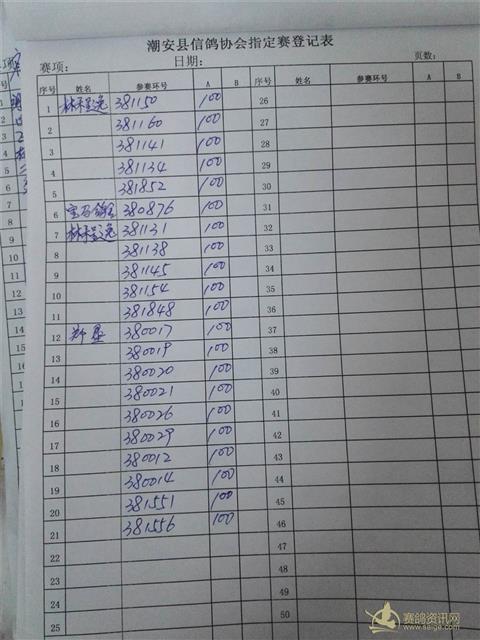 潮安县信鸽协会指定赛登记表
赛项： 日期： 页数：
序号 姓名 参赛环号 A B 序号 姓名 参赛环号 A B
1 381150 100 26
2 381160 100 27
3 381141 100 28
4 381134 100 29
5 381852 100 30
6 380876 100 31
7 381131 100 32
8 381138 100 33
9 381145 100 34
10 381154 100 35
11 381848 100 36
12 380017 100 37
13 380019 100 38
14 380020 100 39
15 380021 100 40
16 380026 100 41
17 380029 100 42
18 380012 100 43
19 380014 100 44
20 381551 100 45
21 381556 100 46
22 47
23 48
24 49
25 50
赛鸽资讯网
www.saige.com